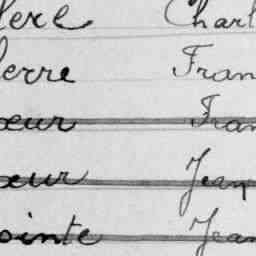 lere Charl
erre Fran
œur Fran
œur Jean
ointe Jean